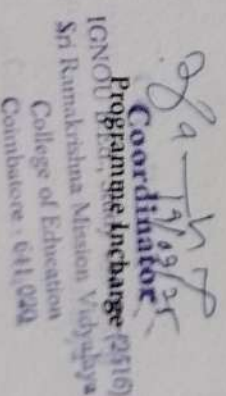 19/09/25
Coordinator
Programme Incharge (2516)
IGNOU
Sri Ramakrishna Mission Vidyalaya
College of Education
Coimbatore - 641 020